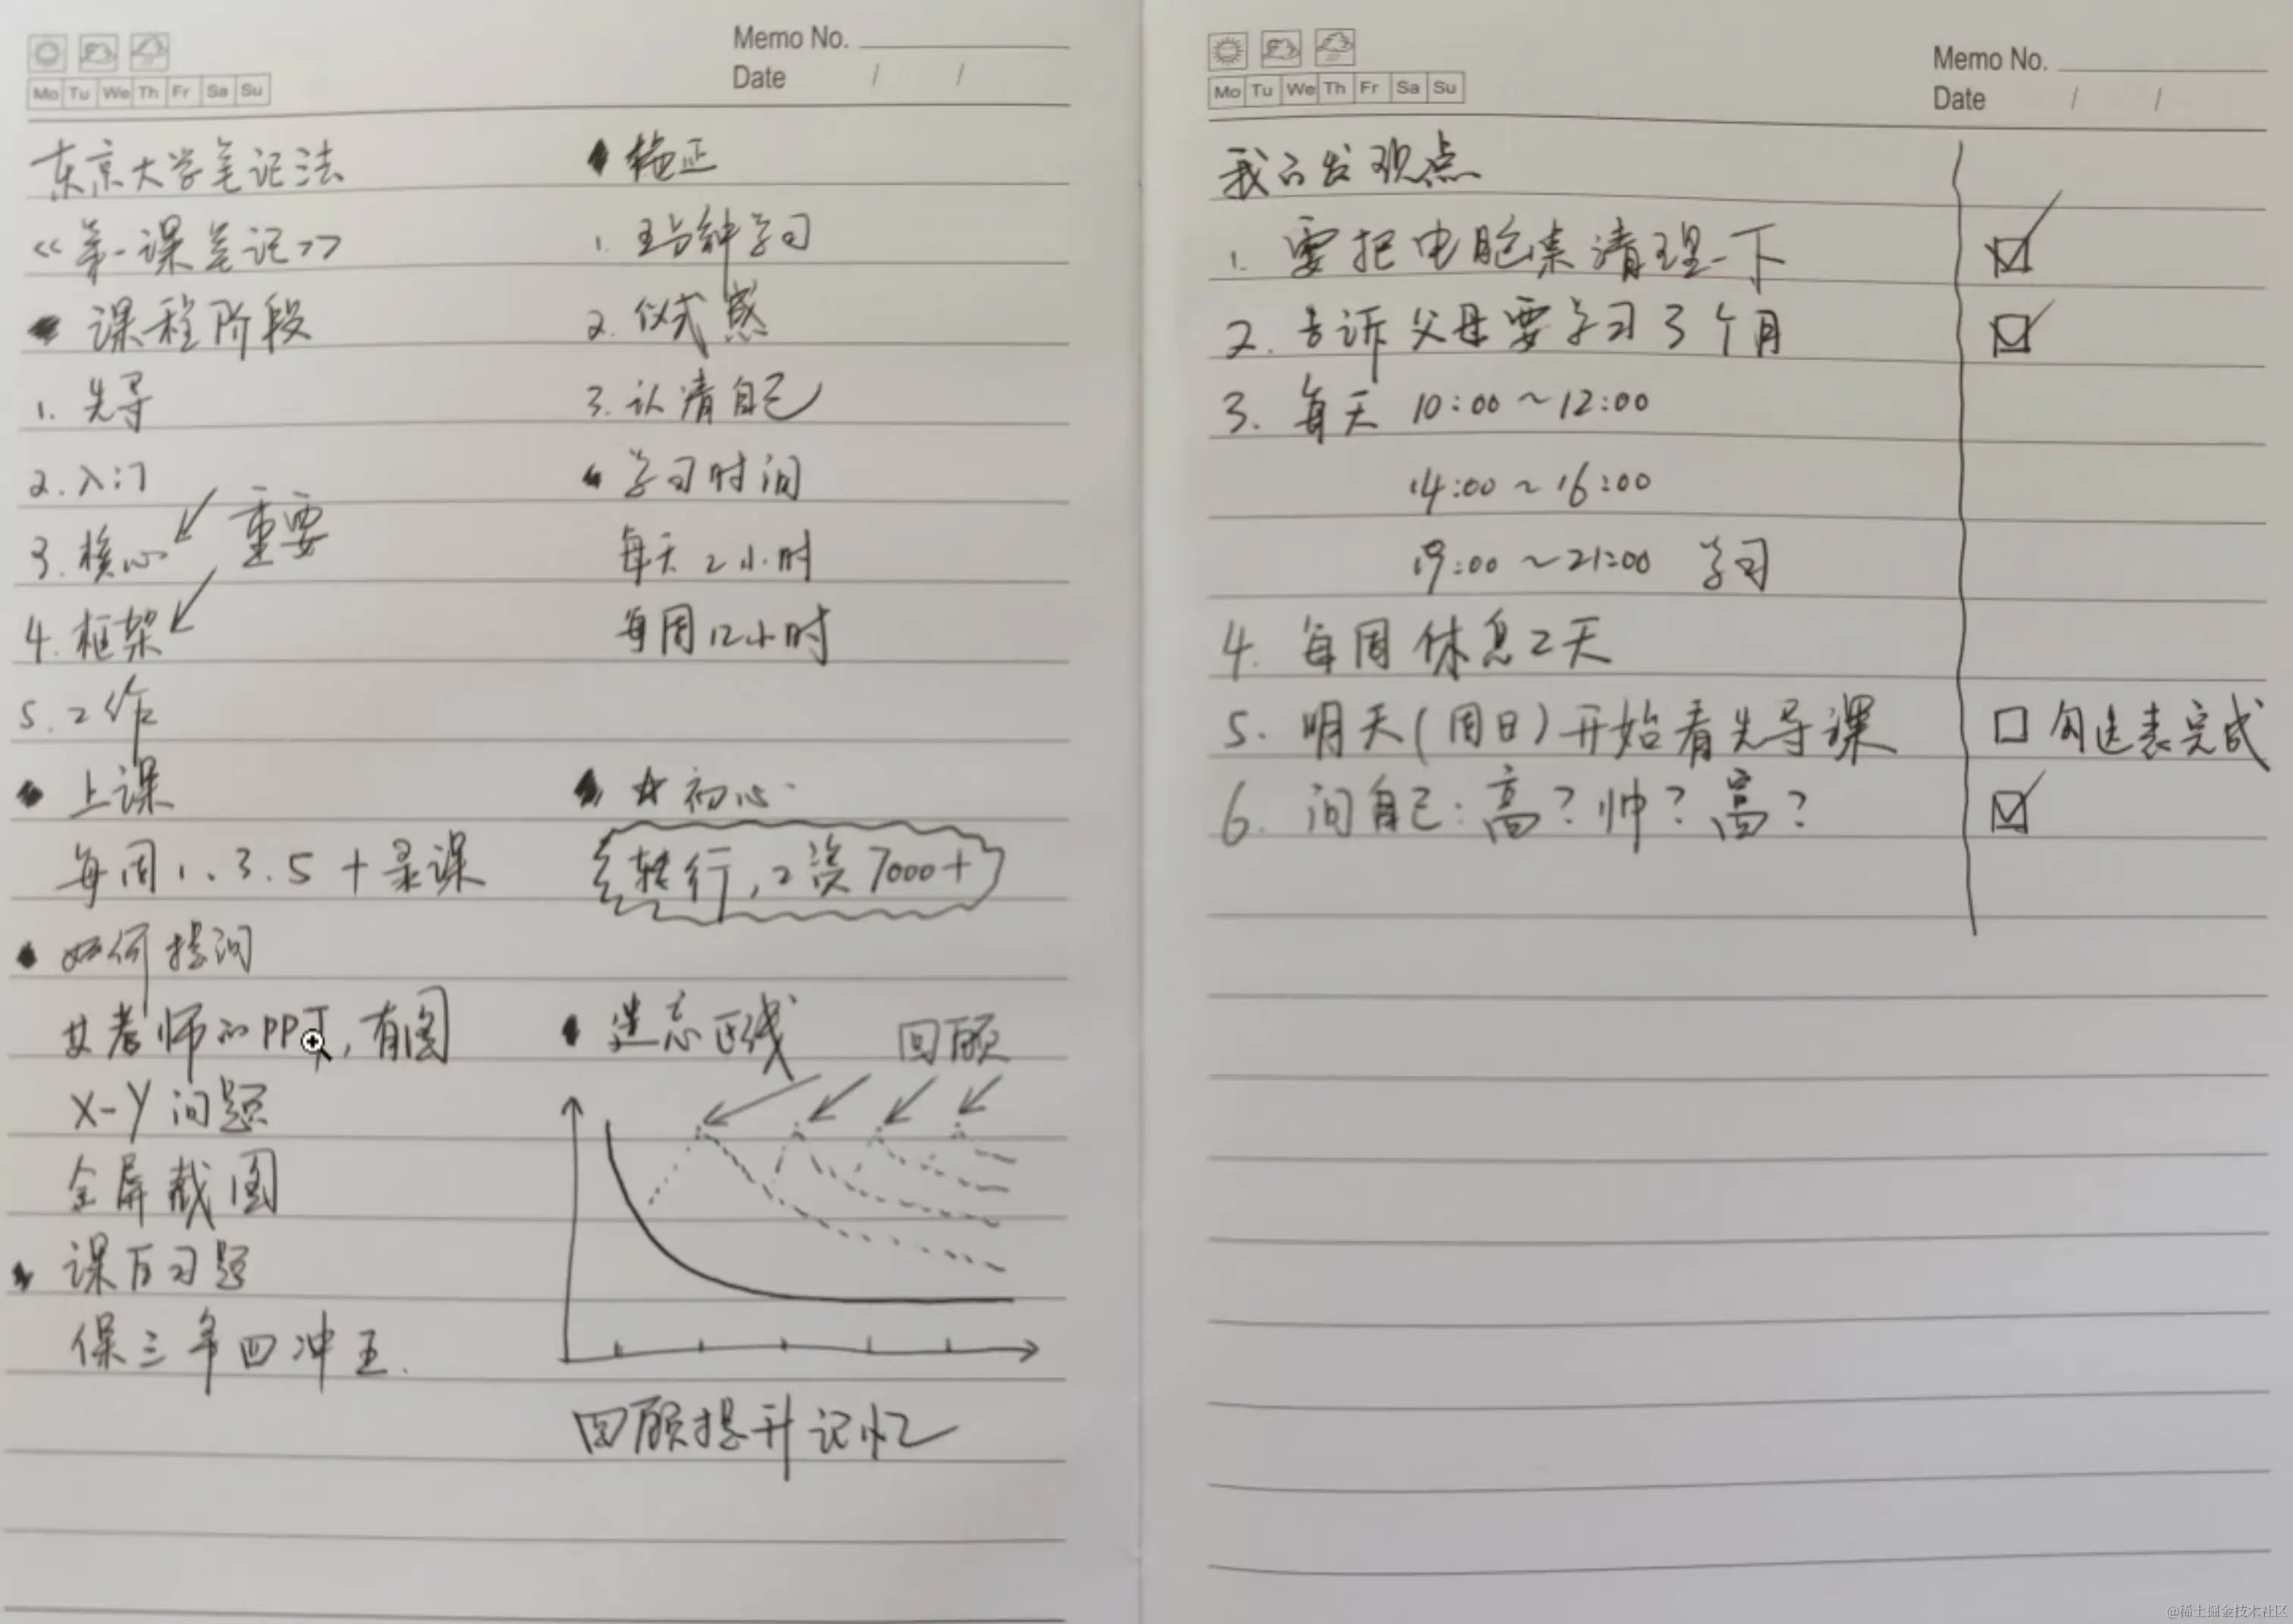 Memo No.
Date / /
Mo Tu We Th Fr Sa Su
东京大学笔记法
《第一课笔记》
课程阶段
1. 先导
2. 入门
3. 核心
重要
4. 框架
5. 工作
上课
每周1、3、5 + 录课
如何提问
老师的PPT,有图
X-Y问题
全屏截图
课后习题
保三争四冲五.
拖延
1. 五分钟学习
2. 仪式感
3. 认清自己
学习时间
每天2小时
每周12小时
☆初心
转行,工资7000+
遗忘曲线
回顾
回顾提升记忆
Memo No.
Date / /
Mo Tu We Th Fr Sa Su
我的 观点
1. 要把电脑桌清理一下 ☑
2. 告诉父母要学习3个月 ☑
3. 每天 10:00~12:00
14:00~16:00
19:00~21:00 学习
4. 每周休息2天
5. 明天(周日)开始看先导课 □ 勾选表完成
6. 问自己:高?帅?富? ☑
@稀土掘金技术社区